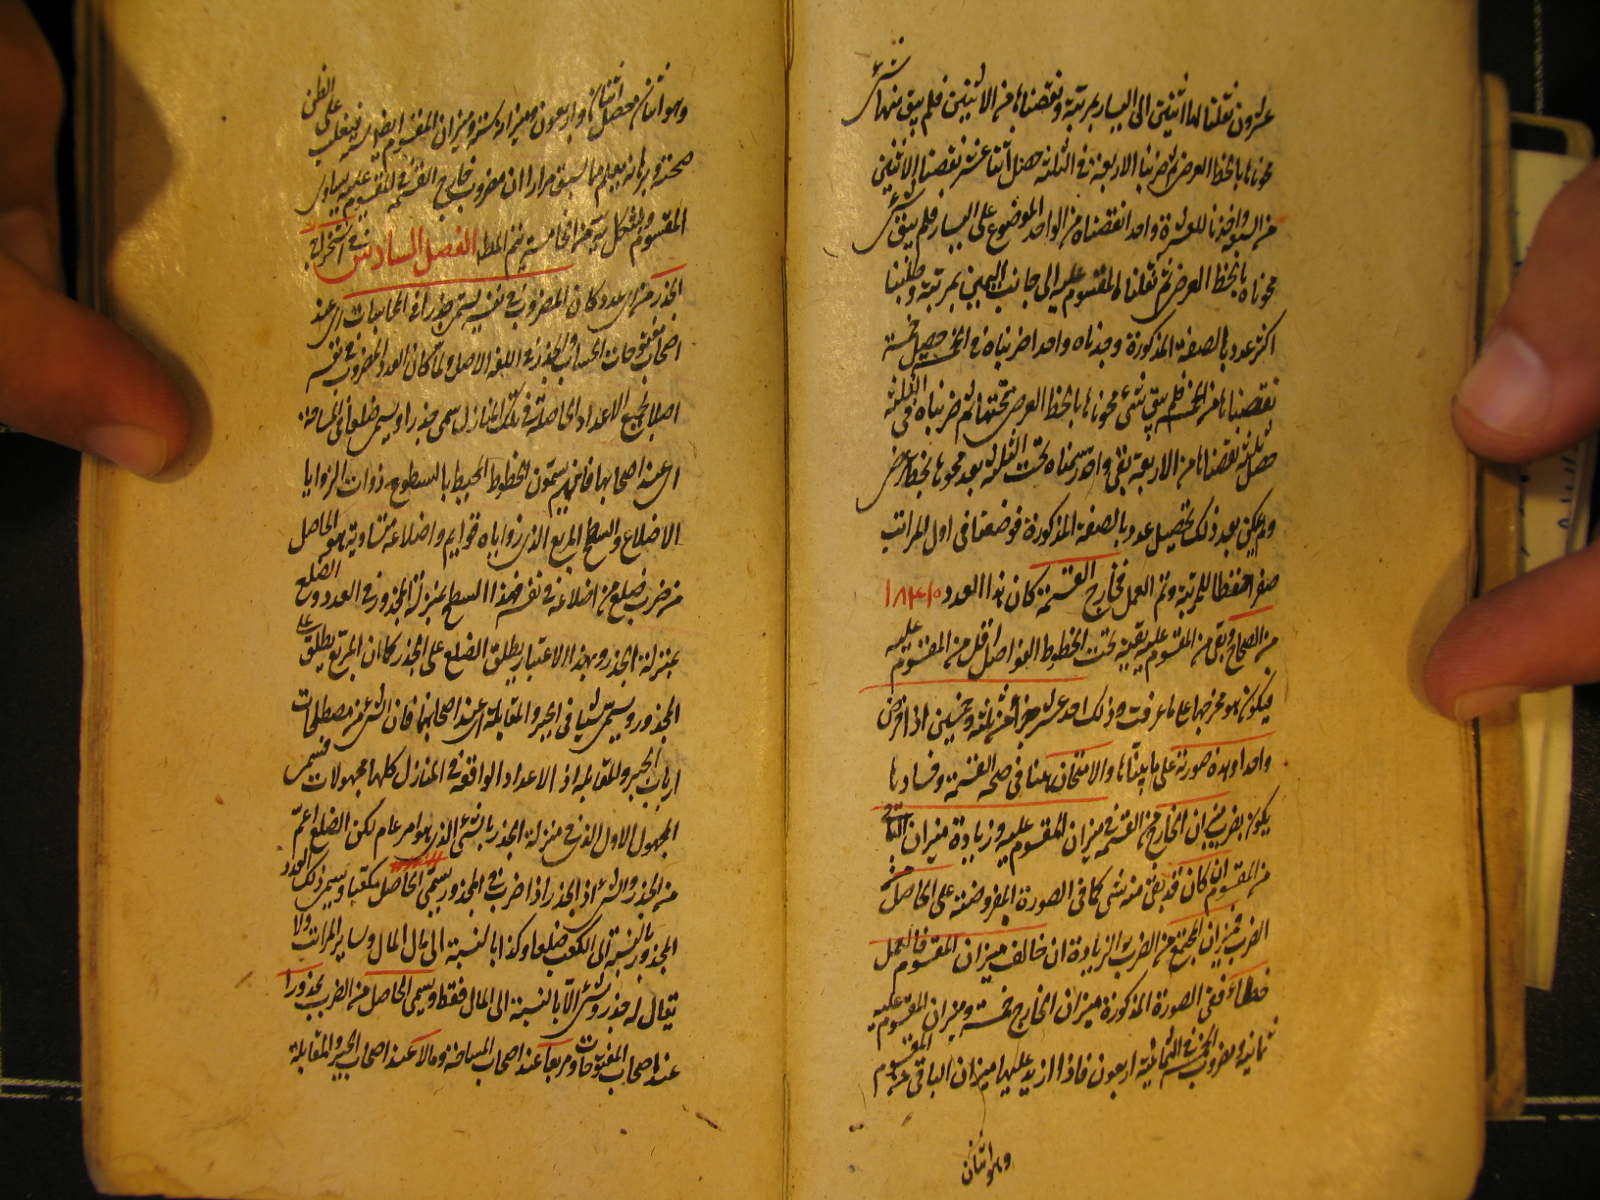 عشرون نقلنا لها اثنين الى اليسار بمرتبة ونقصناها من الاثنين فلم يبق منها شئ
محوناها بالخط العرضى ثم ضربنا الاربعة فى الثلثة حصل اثنا عشر نقصنا الاثنين
من السبعة واخذنا للعشرة واحدا نقصناه من الواحد الموضوع على اليسار فلم يبق شئ
محوناه بالخط العرضى ثم نقلنا المقسوم عليه الى جانب اليمين بمرتبة وطلبنا
اكثر عدد بالصفة المذكورة وجدناه واحدا ضربناه فى الخمسة حصل خمسة
نقصناها من الخمسة فلم يبق شئ محوناها بالخط العرضى تحتها ثم ضربناه فى الثلثة
حصل ثلثة نقصناها من الاربعة بقى واحد رسمناه تحت الثلثة بعد محوها بخط عرضى
ولم يمكن بعد ذلك تحصيل عدد بالصفة المذكورة فوضعنا فى اول المراتب
صفرا حفظا للمرتبة وتم العمل فخارج القسمة كان هذا العدد
من الصحاح وبقى من المقسوم عليه بقية تحت الخطوط الفواصل اقل من المقسوم عليه
فيكون هو مخرجها على ما عرفت وذلك احد عشر جزأ من ثلثة وخمسين اذا فرض
واحدا وهذه صورته على ما بيناها والامتحان ههنا فى صحة القسمة وفسادها
يكون بضرب ميزان الخارج من القسمة فى ميزان المقسوم عليه وزيادة ميزان الباقى
من المقسوم ان كان قد بقى منه شئ كما فى الصورة المفروضة على الحاصل من
الضرب فميزان المجتمع من الضرب والزيادة ان خالف ميزان المقسوم فالعمل
خطاء ففى الصورة المذكورة ميزان الخارج خمسة وميزان المقسوم عليه
ثمانية ومضروب الخمسة فى الثمانية اربعون فاذا ازيد عليها ميزان الباقى من المقسوم
وهو اثنان
وهو اثنان حصل اثنان واربعون وميزانه ستة وميزان المقسوم ايضا ستة فيغلب على الظن
صحته وبرهانه يعلم مما سبق مرارا ان مضروب خارج القسمة فى المقسوم عليه يساوى
المقسوم الفصل السادس فى استخراج
الجذر من اى عدد كان المضروب فى نفسه يسمى جذرا فى المحاسبات اى عند
اصحاب مفتوحات الحساب والجذر فى اللغة الاصل ولما كان العدد المضروب فى نفسه
اصلا لجميع الاعداد الحاصلة فى تلك المنازل سمى جذرا ويسمى ضلعا فى المساحة
اى عند اصحابها فانهم يسمون الخطوط المحيط بالسطوح ذوات الزوايا
الاضلاع والسطح المربع الذى زواياه قوايم واضلاعه متساوية هو الحاصل
من ضرب ضلع من اضلاعه فى نفسه فهذا السطح بمنزلة المجذور فى العدد والضلع
بمنزلة الجذر وبهذا الاعتبار يطلق الضلع على الجذر كما ان المربع يطلق على
المجذور ويسمى شيئا فى الجبر والمقابلة اى عند اصحابهما فان الشئ من مصطلحات
ارباب الجبر والمقابلة اذ الاعداد الواقعة فى المنازل كلها مجهولات فسمى
المجهول الاول الذى فى منزلة الجذر بالشئ الذى هو امر عام لكن الضلع اعم
من الجذر والشئ اذ الجذر اذا ضرب فى المجذور يسمى الحاصل مكعبا ويسمى ذلك العدد
المجذور بالنسبة الى الكعب ضلعا وكذا بالنسبة الى مال المال وساير المراتب ولا
يقال له جذر وشئ الا بالنسبة الى المال فقط ويسمى الحاصل من الضرب مجذورا
عند اصحاب المفتوحات ومربعا عند اصحاب المساحة ومالا عند اصحاب الجبر والمقابلة